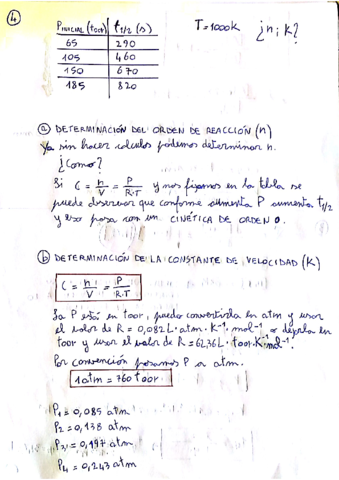 4
PINICIAL (toor) t1/2 (s) T=1000K ¿n; k?
65 290
105 460
150 670
185 820
a) DETERMINACIÓN DEL ORDEN DE REACCIÓN (n)
Ya sin hacer calculos podemos determinar n.
¿Como?
Si C = n/V = P/R.T y nos fijamos en la tabla se
puede observar que conforme aumenta P aumenta t1/2
y eso pasa con un CINÉTICA DE ORDEN 0.
b) DETERMINACIÓN DE LA CONSTANTE DE VELOCIDAD (K)
C = n/V = P/R.T
La P está en toor, puedo convertirla en atm y usar
el valor de R = 0,082 L·atm·K-1·mol-1 o dejarla en
toor y usar el valor de R = 62,36 L·toor·K-1·mol-1.
Por convención pasamos P a atm.
1 atm = 760 toor
P1 = 0,085 atm
P2 = 0,138 atm
P3 = 0,197 atm
P4 = 0,243 atm